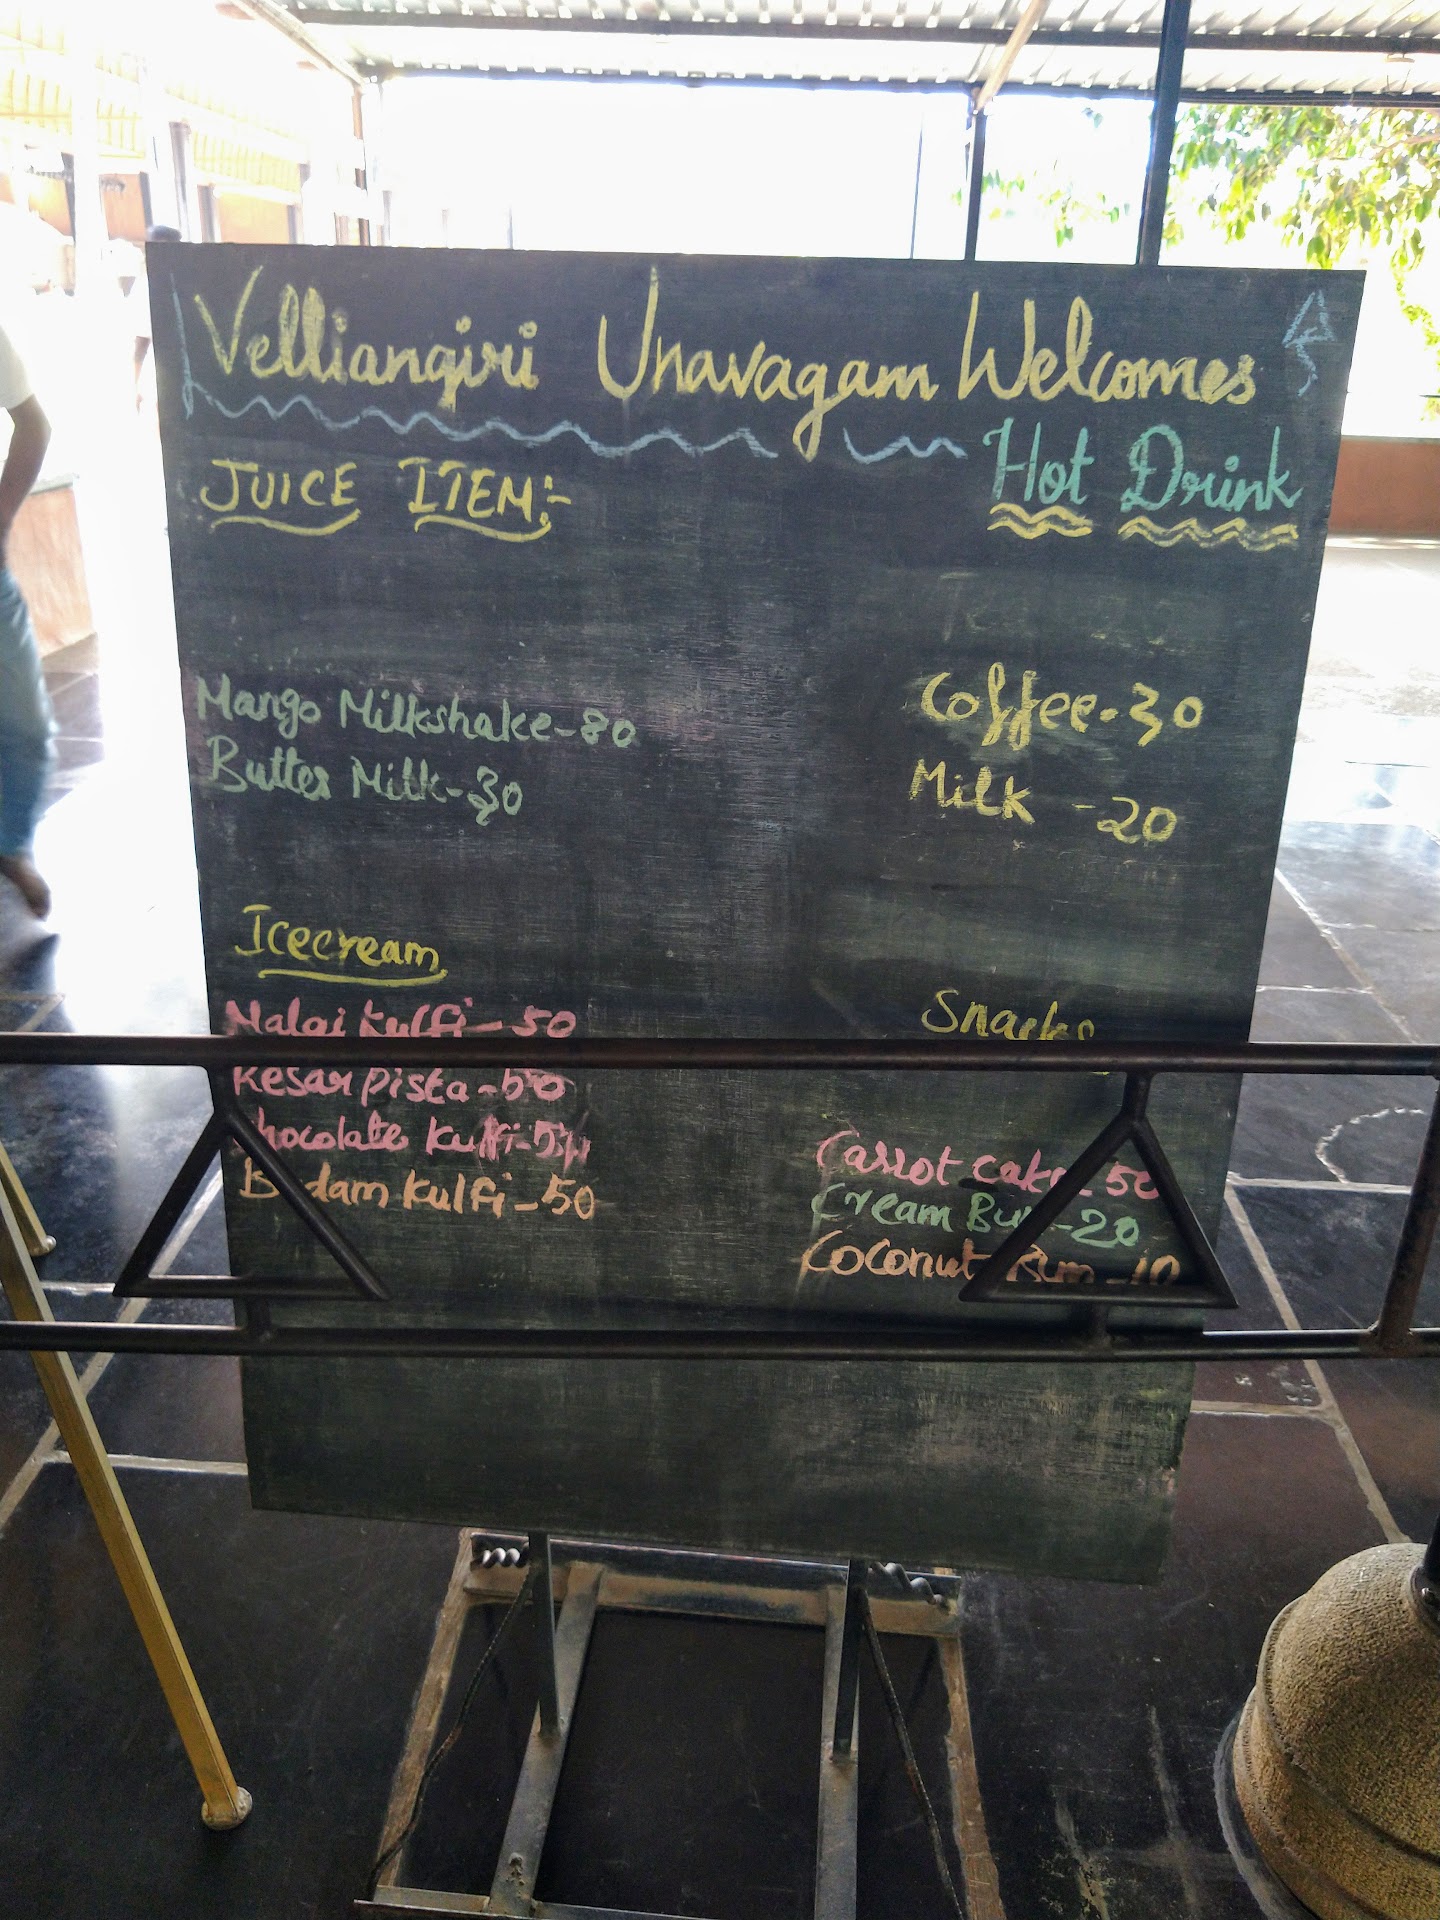 Velliangiri Unavagam Welcomes
JUICE ITEM:-
Mango Milkshake-80
Butter Milk-30
Icecream
Malai kulfi-50
Kesar pista-50
chocolate kulfi-50
Badam kulfi-50
Hot Drink
Coffee-30
Milk -20
Snacks
Carrot cake-50
Cream Bun-20
Coconut Bun-10